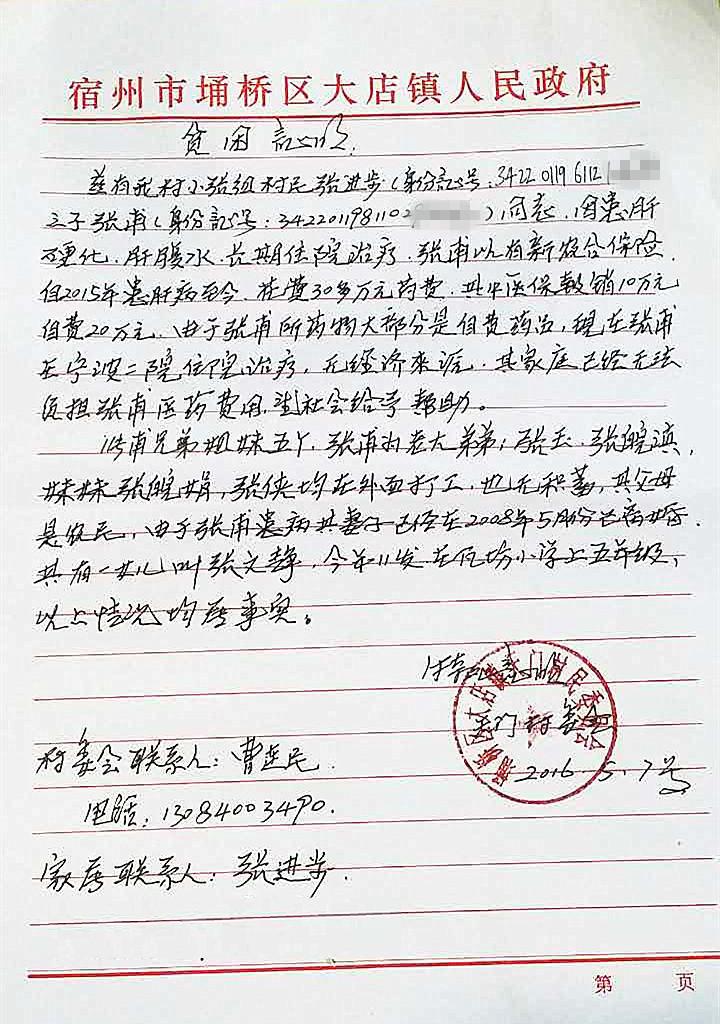 宿州市埇桥区大店镇人民政府
贫困证明
兹有我村小张组村民张进步(身份证号:342201196112
之子张甫(身份证号:342201198110),同志.因患肝
硬化.肝腹水.长期住院治疗.张甫以有新农合保险.
但2015年患肝病至今.花费30多万元药费.其中医保报销10万元
自费20万元.由于张甫所药物大部分是自费药治,现在张甫
在宁波二院住院治疗,无经济来源.其家庭已经无法
负担张甫医药费用.望社会给予帮助。
张甫兄弟姐妹五个,张甫为老大弟弟;张玉.张皖滇,
妹妹张皖娟,张侠均在外面打工.也无积蓄,其父母
是农民,由于张甫患病其妻子已经在2008年5月份已离婚.
共有一女儿叫张文静,今年11岁.在任坊小学上五年级,
以上情况均属事实。
特此证明
村委会
2016.5.7号
村委会联系人:曹连民.
电话:13084003490.
家属联系人:张进步.
第 页